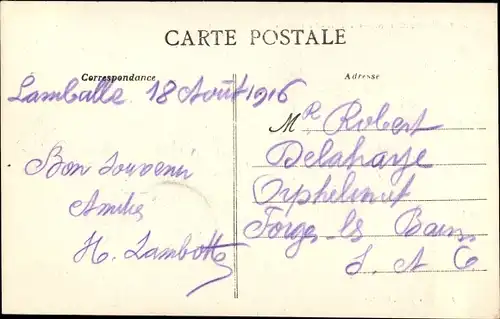 CARTE POSTALE
Correspondance
Adresse
Lamballe 18 Août 1916
Mr Robert
Delahaye
Orphelinat
Forges-les Bains
S. et O.
Bon souvenir
Amitiés
H. Lambott